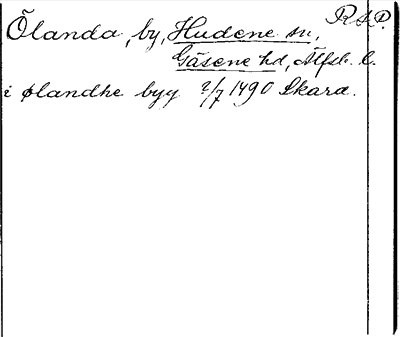 R A P.
Ölanda, by, Hudene sn,
Gäsene hd, Älfsb. l.
i ølandhe byy ?/7 1490 Skara.